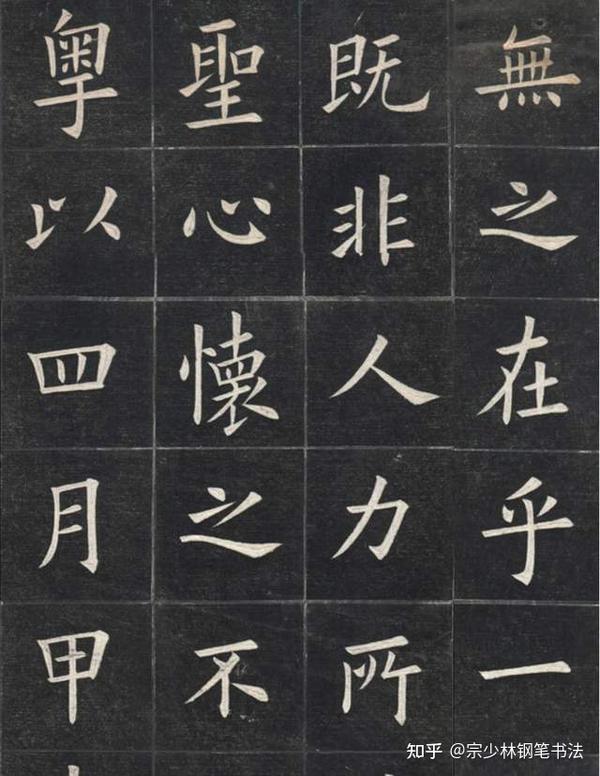 無之在乎一
既非人力所
聖心懷之不
粤以四月甲
知乎 @宗少林钢笔书法